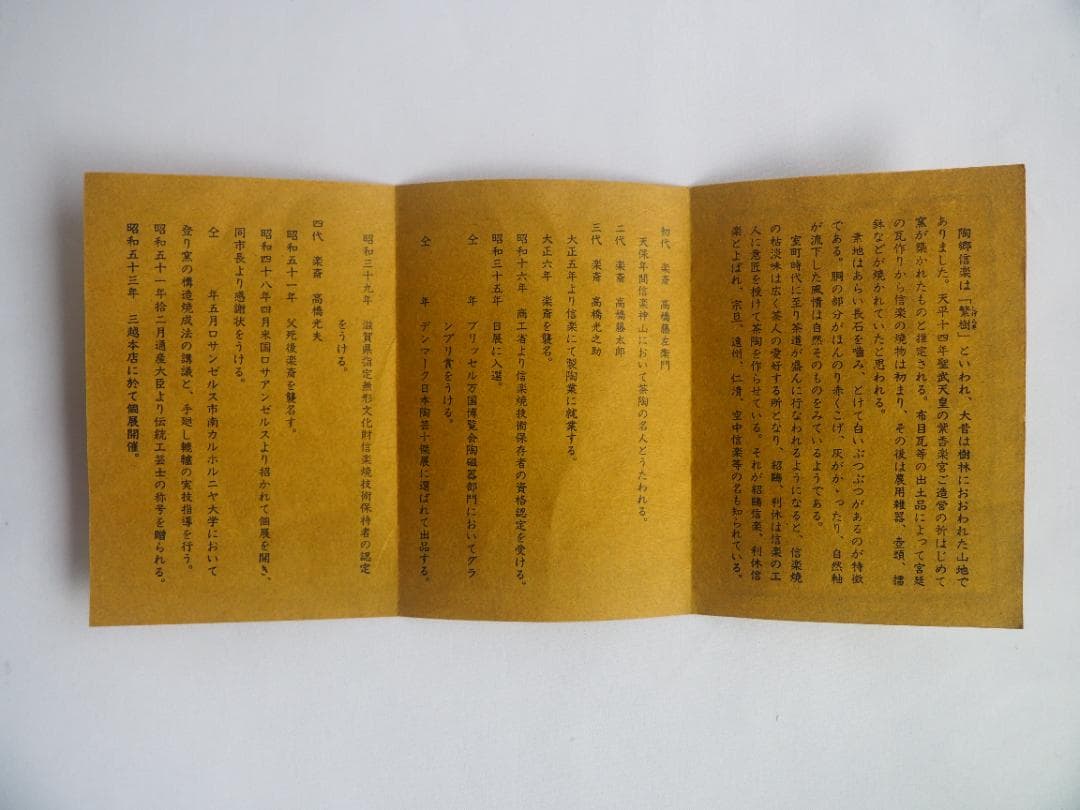 陶郷信楽は「繁樹」といわれ、大昔は樹林におおわれた山地で
ありました。天平十四年聖武天皇の紫香楽宮ご造営の折はじめて
窯が築かれたものと推定される。布目瓦等の出土品によって宮廷
の瓦作りから信楽の焼物は初まり、その後は農用雑器、壺頭、擂
鉢などが焼かれていたと思われる。
素地はあらい長石を嚙み、とけて白いぶつぶつがあるのが特徴
である。胴の部分がほんのり赤くこげ、灰がかゝったり、自然釉
が流下した風情は自然そのものをみているようである。
室町時代に至り茶道が盛んに行なわれるようになると、信楽焼
の枯淡味は広く茶人の愛好する所となり、紹鷗、利休は信楽の工
人に意匠を授けて茶陶を作らせている。それが紹鷗信楽、利休信
楽とよばれ、宗旦、遠州、仁清、空中信楽等の名も知られている。
初代 楽斎 高橋藤左衛門
天保年間信楽神山において茶陶の名人とうたわれる。
二代 楽斎 高橋藤太郎
三代 楽斎 高橋光之助
大正五年より信楽にて製陶業に就業する。
大正六年 楽斎を襲名。
昭和十六年 商工省より信楽焼技術保存者の資格認定を受ける。
昭和三十五年 日展に入選。
仝 年 ブリッセル万国博覧会陶磁器部門においてグラ
ンプリ賞をうける。
仝 年 デンマーク日本陶芸十傑展に選ばれて出品する。
昭和三十九年 滋賀県指定無形文化財信楽焼技術保持者の認定
をうける。
四代 楽斎 高橋光夫
昭和五十一年 父死後楽斎を襲名す。
昭和四十八年四月米国ロサアンゼルスより招かれて個展を開き、
同市長より感謝状をうける。
仝 年五月ロサンゼルス市南カルホルニヤ大学において
登り窯の構造焼成法の講議と、手廻し轆轤の実技指導を行う。
昭和五十一年拾二月通産大臣より伝統工芸士の称号を贈られる。
昭和五十三年 三越本店に於て個展開催。